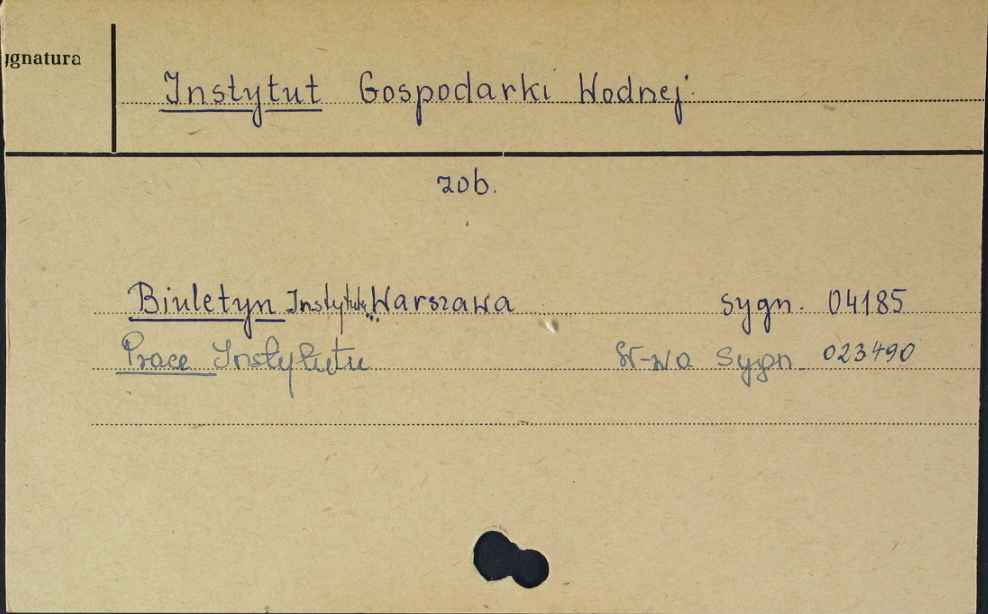 ygnatura
Instytut Gospodarki Wodnej.
zob.
Biuletyn Instytutu Warszawa sygn. 04185
Prace Instytutu W-wa Sygn. 023490